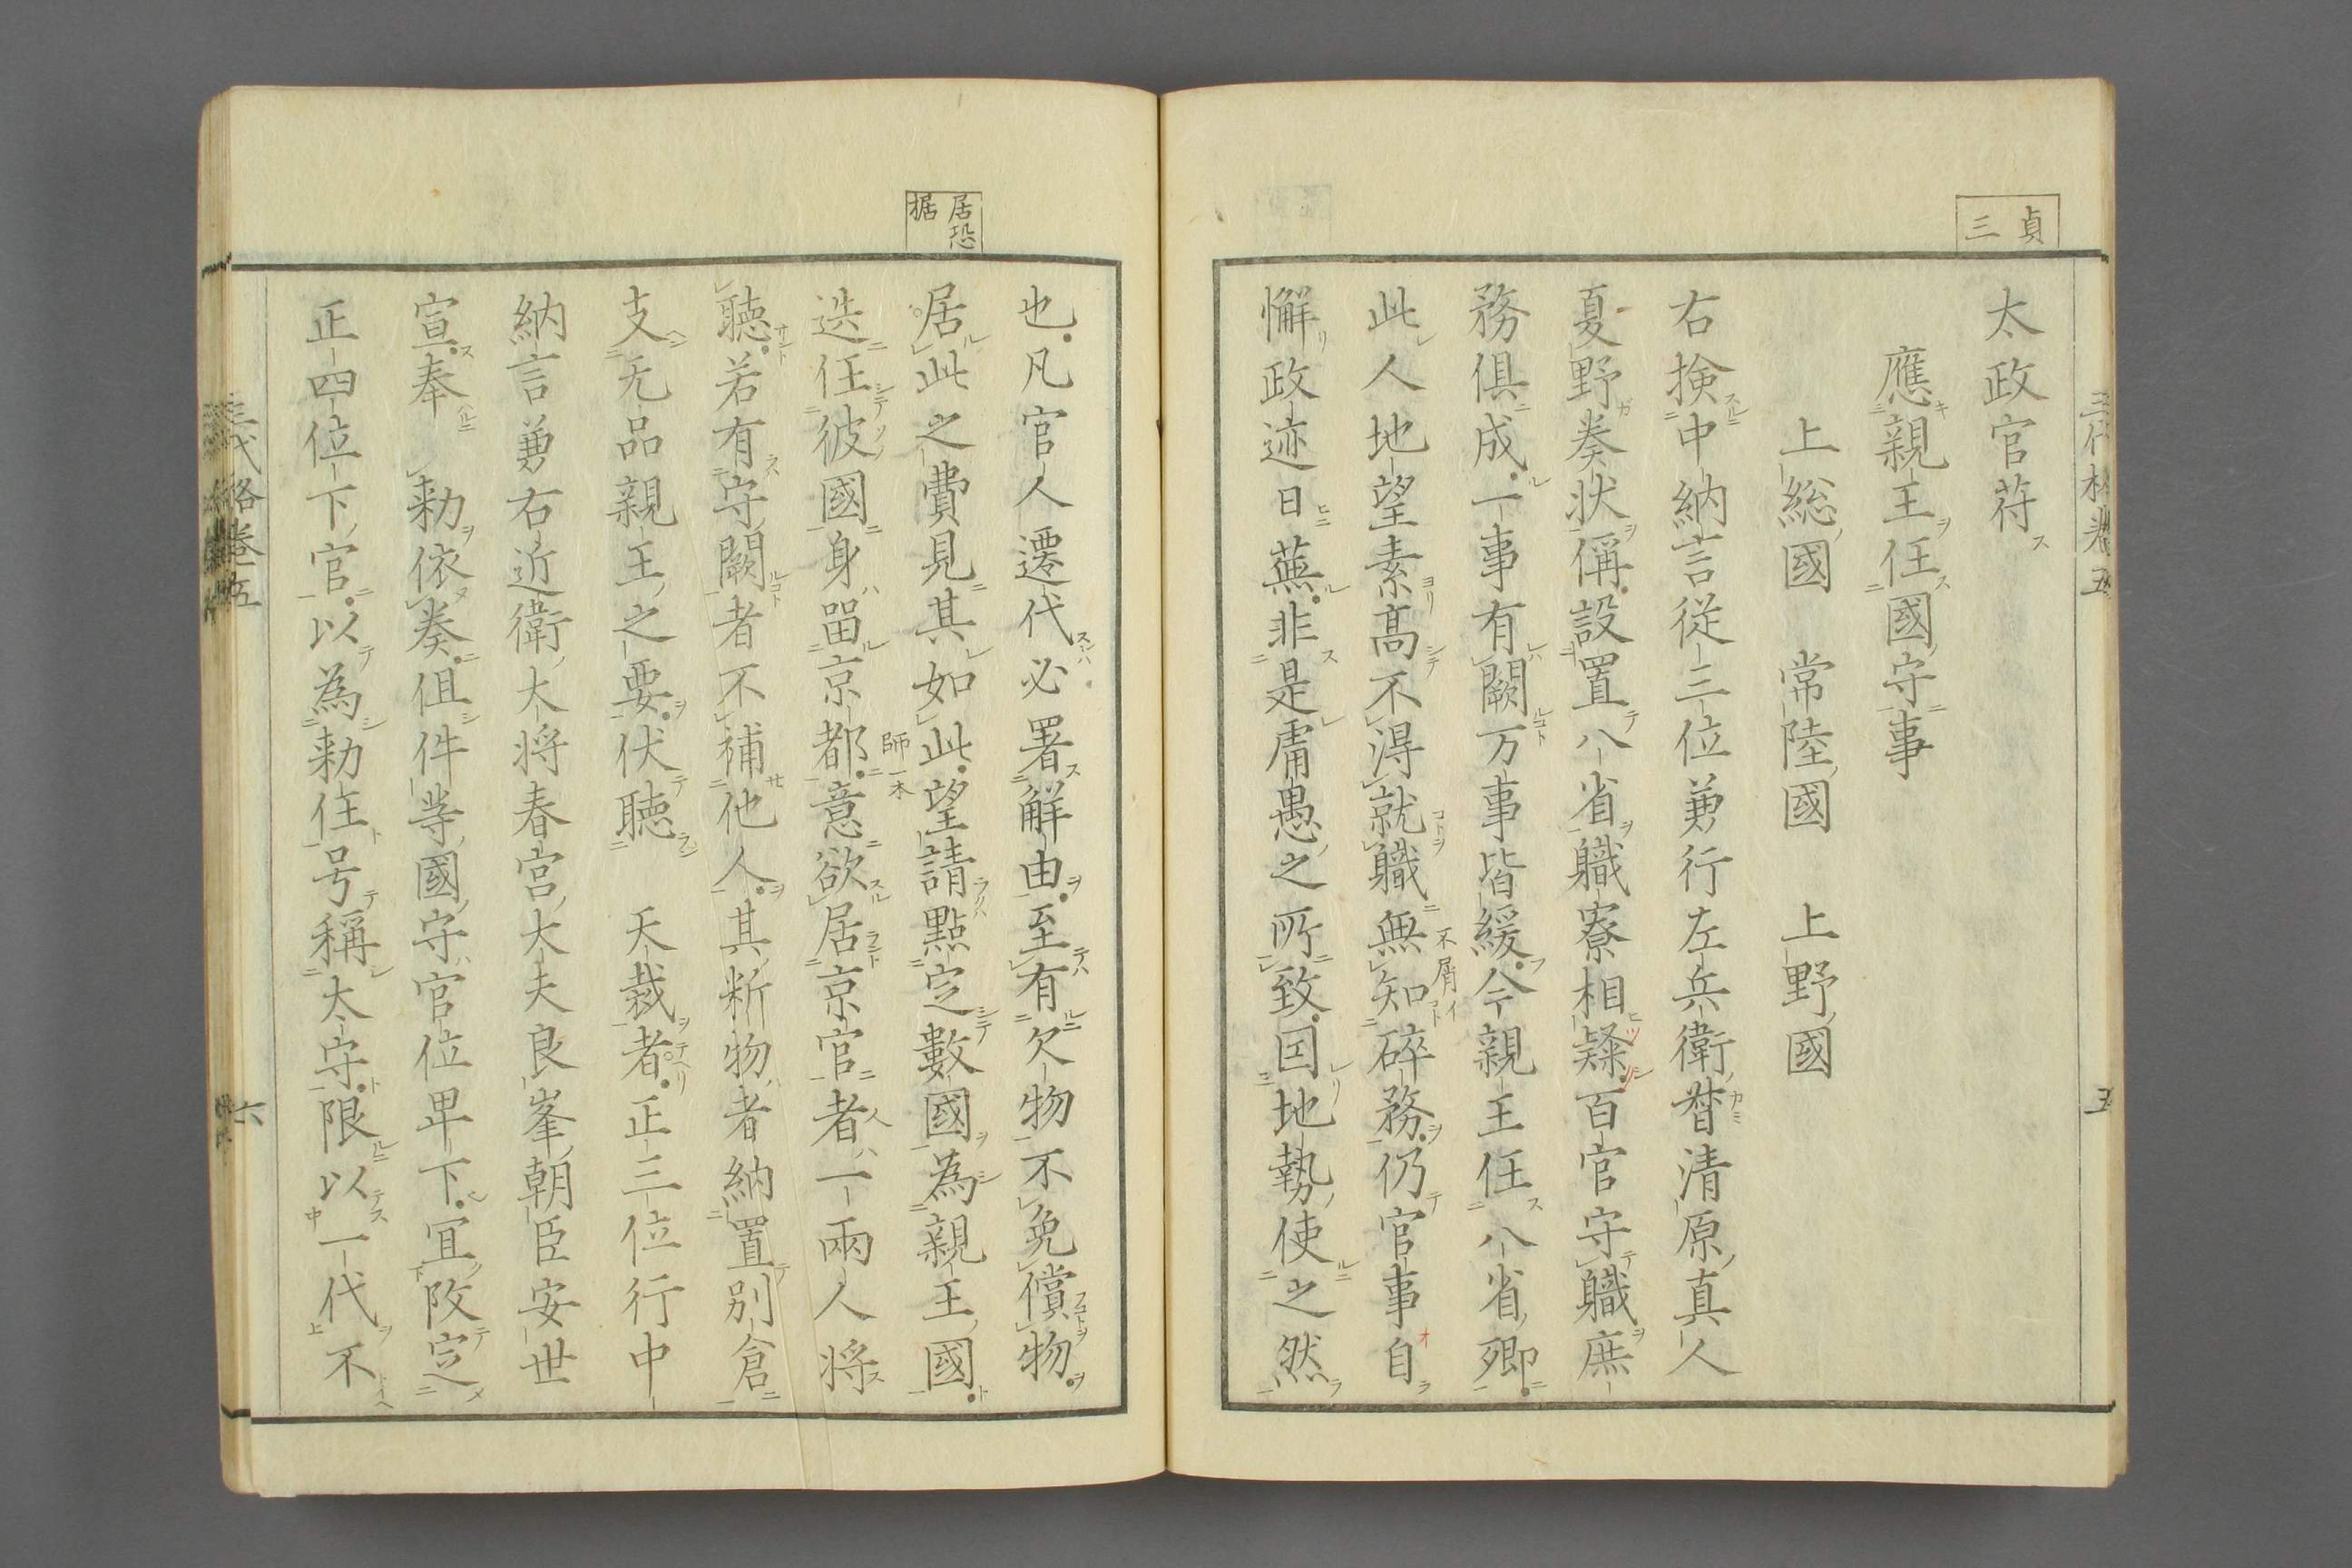 貞
三
太政官符
應親王任國守事
上総國　常陸國　上野國
右検中納言従三位兼行左兵衛督清原真人
夏野奏状偁設置八省職寮相疑百官守職庶
務倶成一事有闕万事皆緩今親王任八省卿
此人地望素髙不得就職無知碎務仍官事自
不屑イ
懈政迹日蕪非是庸愚之所致因地勢使之然
三代格卷五
五
居恐
据
也凡官人遷代必署解由至有欠物不免償物
居此之費見其如此望請點定數國為親王國
迭任彼國身留京都意欲居京官者一兩人将
師一本
聴若有守闕者不補他人其断物者納置別倉
支无品親王之要伏聴　天裁者正三位行中
納言兼右近衛大将春宮大夫良峯朝臣安世
宣奉　勅依奏但件等國守官位卑下冝改定
正四位下官以為勅任号稱太守限以一代不
三代格卷五
六